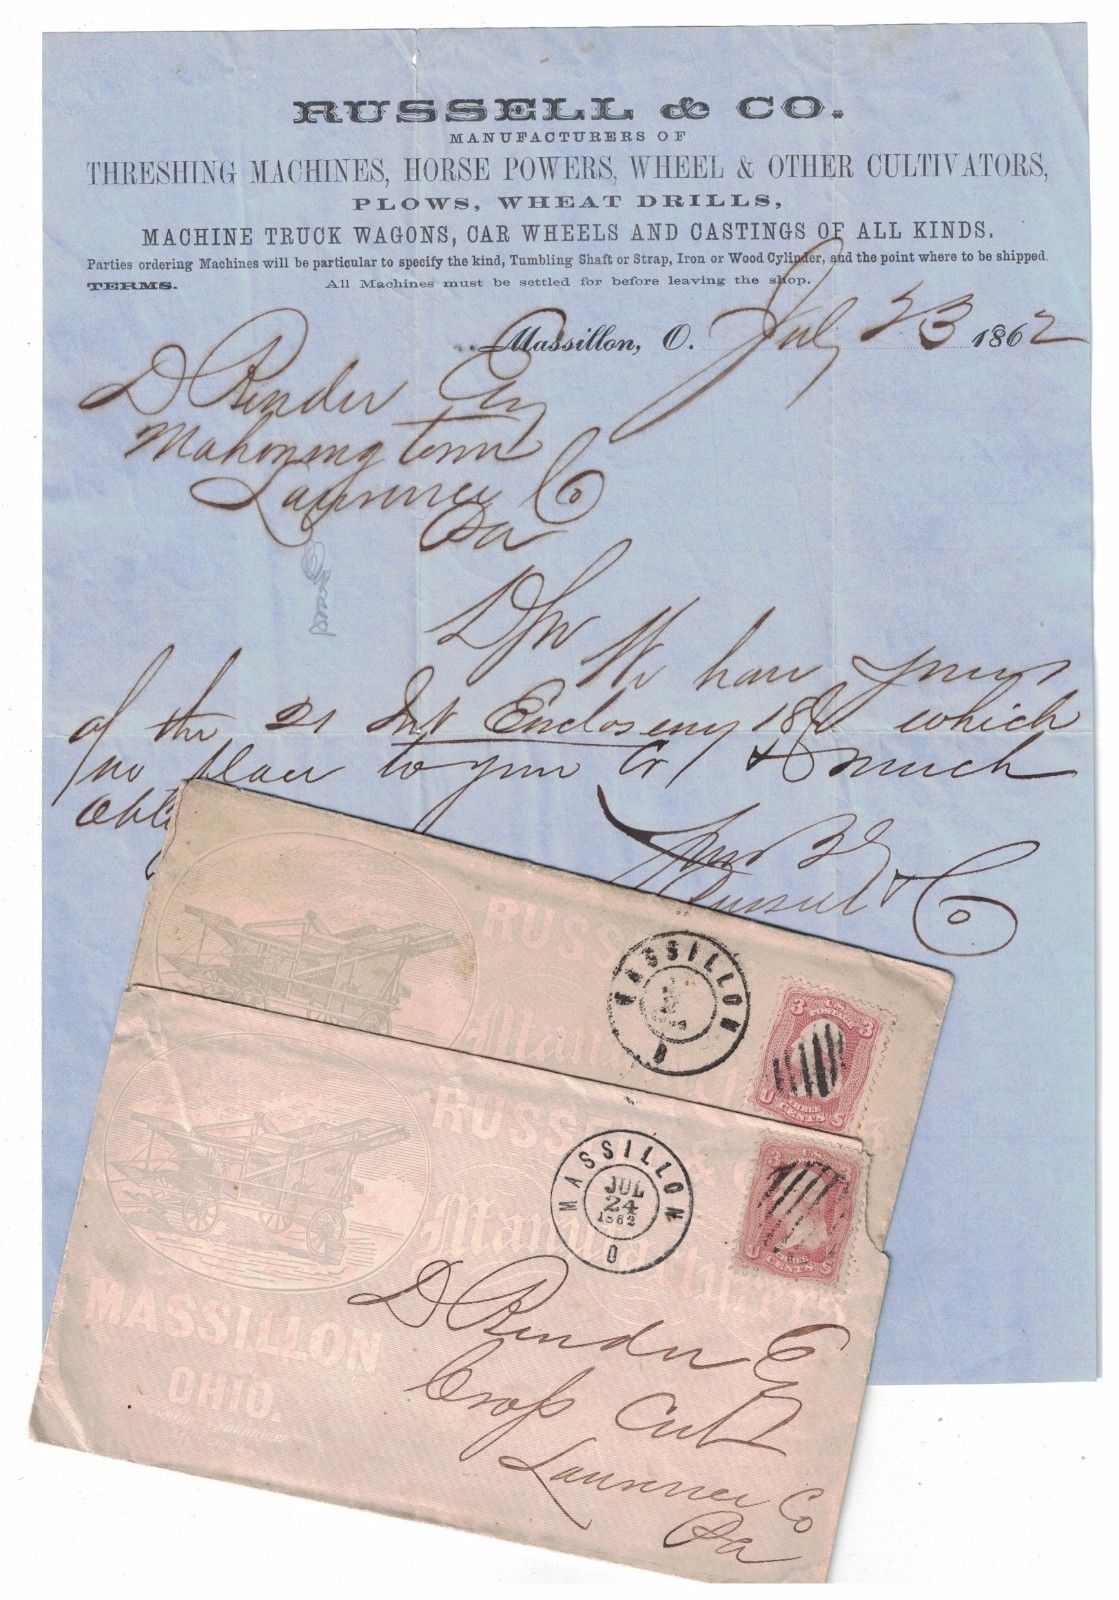 RUSSELL & CO.
MANUFACTURERS OF
THRESHING MACHINES, HORSE POWERS, WHEEL & OTHER CULTIVATORS,
PLOWS, WHEAT DRILLS,
MACHINE TRUCK WAGONS, CAR WHEELS AND CASTINGS OF ALL KINDS.
Parties ordering Machines will be particular to specify the kind, Tumbling Shaft or Strap, Iron or Wood Cylinder, and the point where to be shipped.
TERMS. All Machines must be settled for before leaving the shop.
Massillon, O. July 23 1862
D Render Esq
Mahoningtown
Lawrence Co
Pa
D Sir We have yours
of the 21 Inst Enclosing 18 which
we place to your Cr & much
Russell & Co
RUSS
Manu
MASSILLON
O
3 3
U.S.
THREE
CENTS
U S
RUSSELL & CO
Manufacturers
MASSILLON
OHIO.
MASSILLON
JUL
24
1862
O
3
U S
CENTS
D Render Esq
Cross Cut
Lawrence Co
Pa